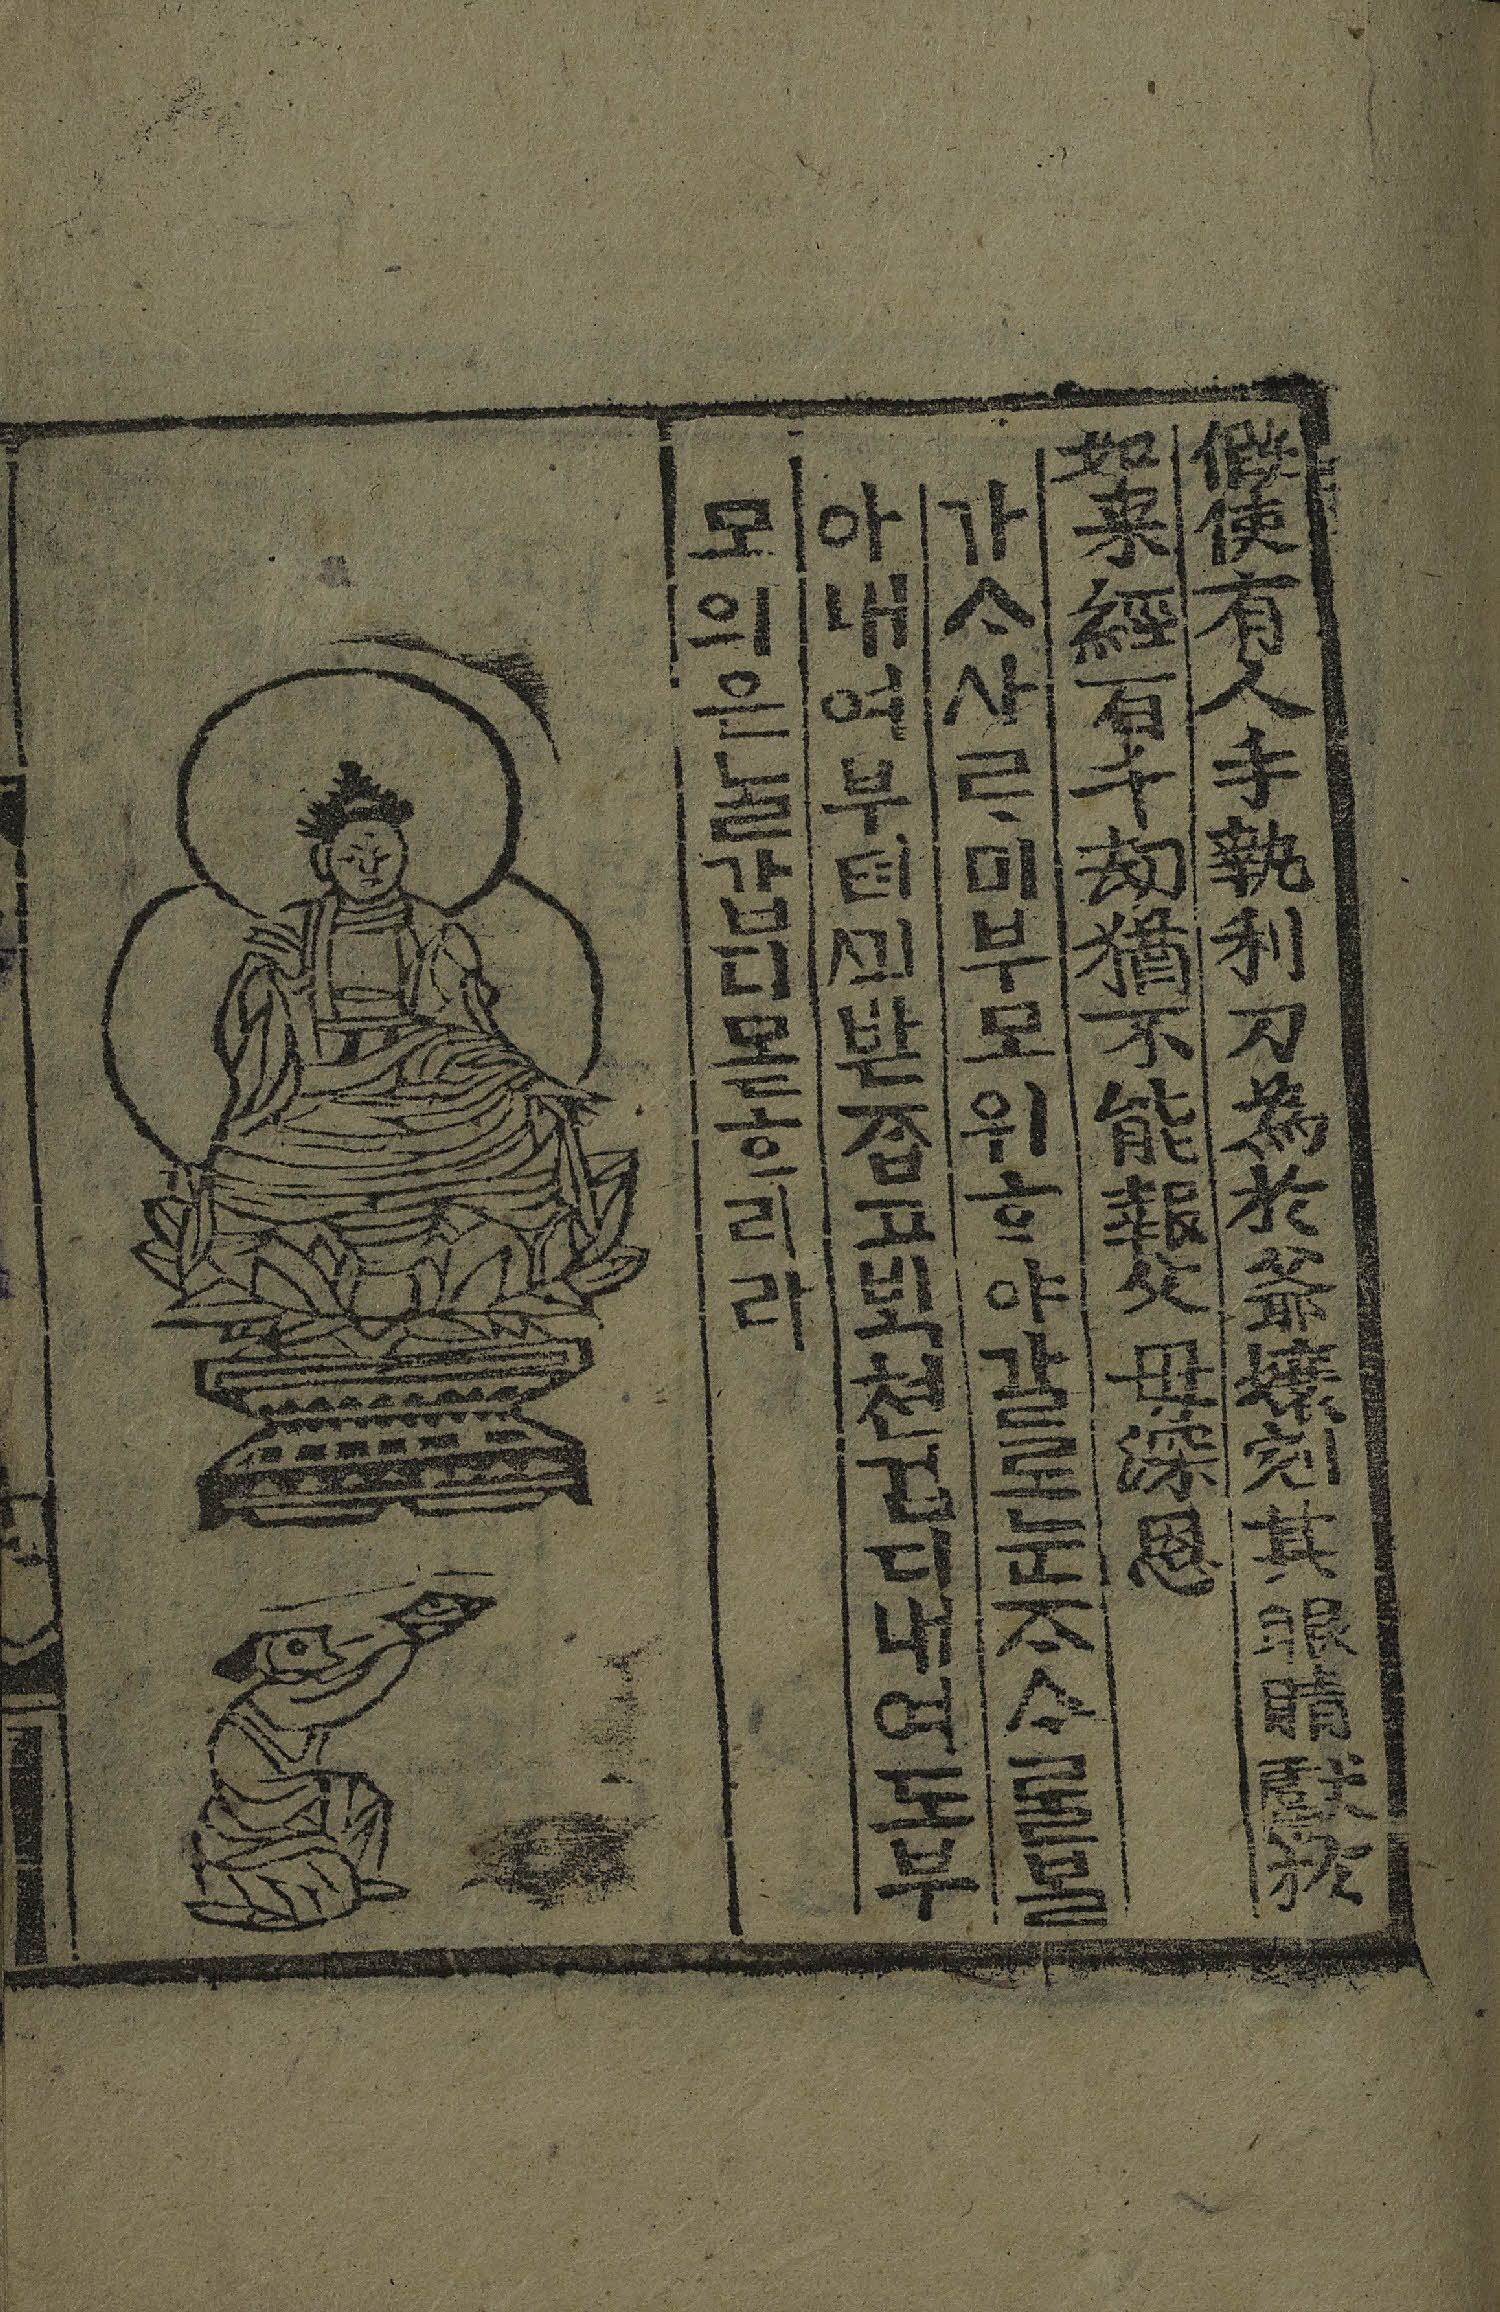 假使有人手執利刀為於爺孃剜其眼睛獻於
如来經百千劫猶不能報父母深恩
가ᄉᆞ사ᄅᆞ미부모위ᄒᆞ야갈로눈ᄌᆞᄉᆞ를볼
아내여부텨ᄭᅴ받ᄌᆞᆸ고ᄇᆡᆨ쳔겁디내여도부
모의은놀갑디몯흐리라